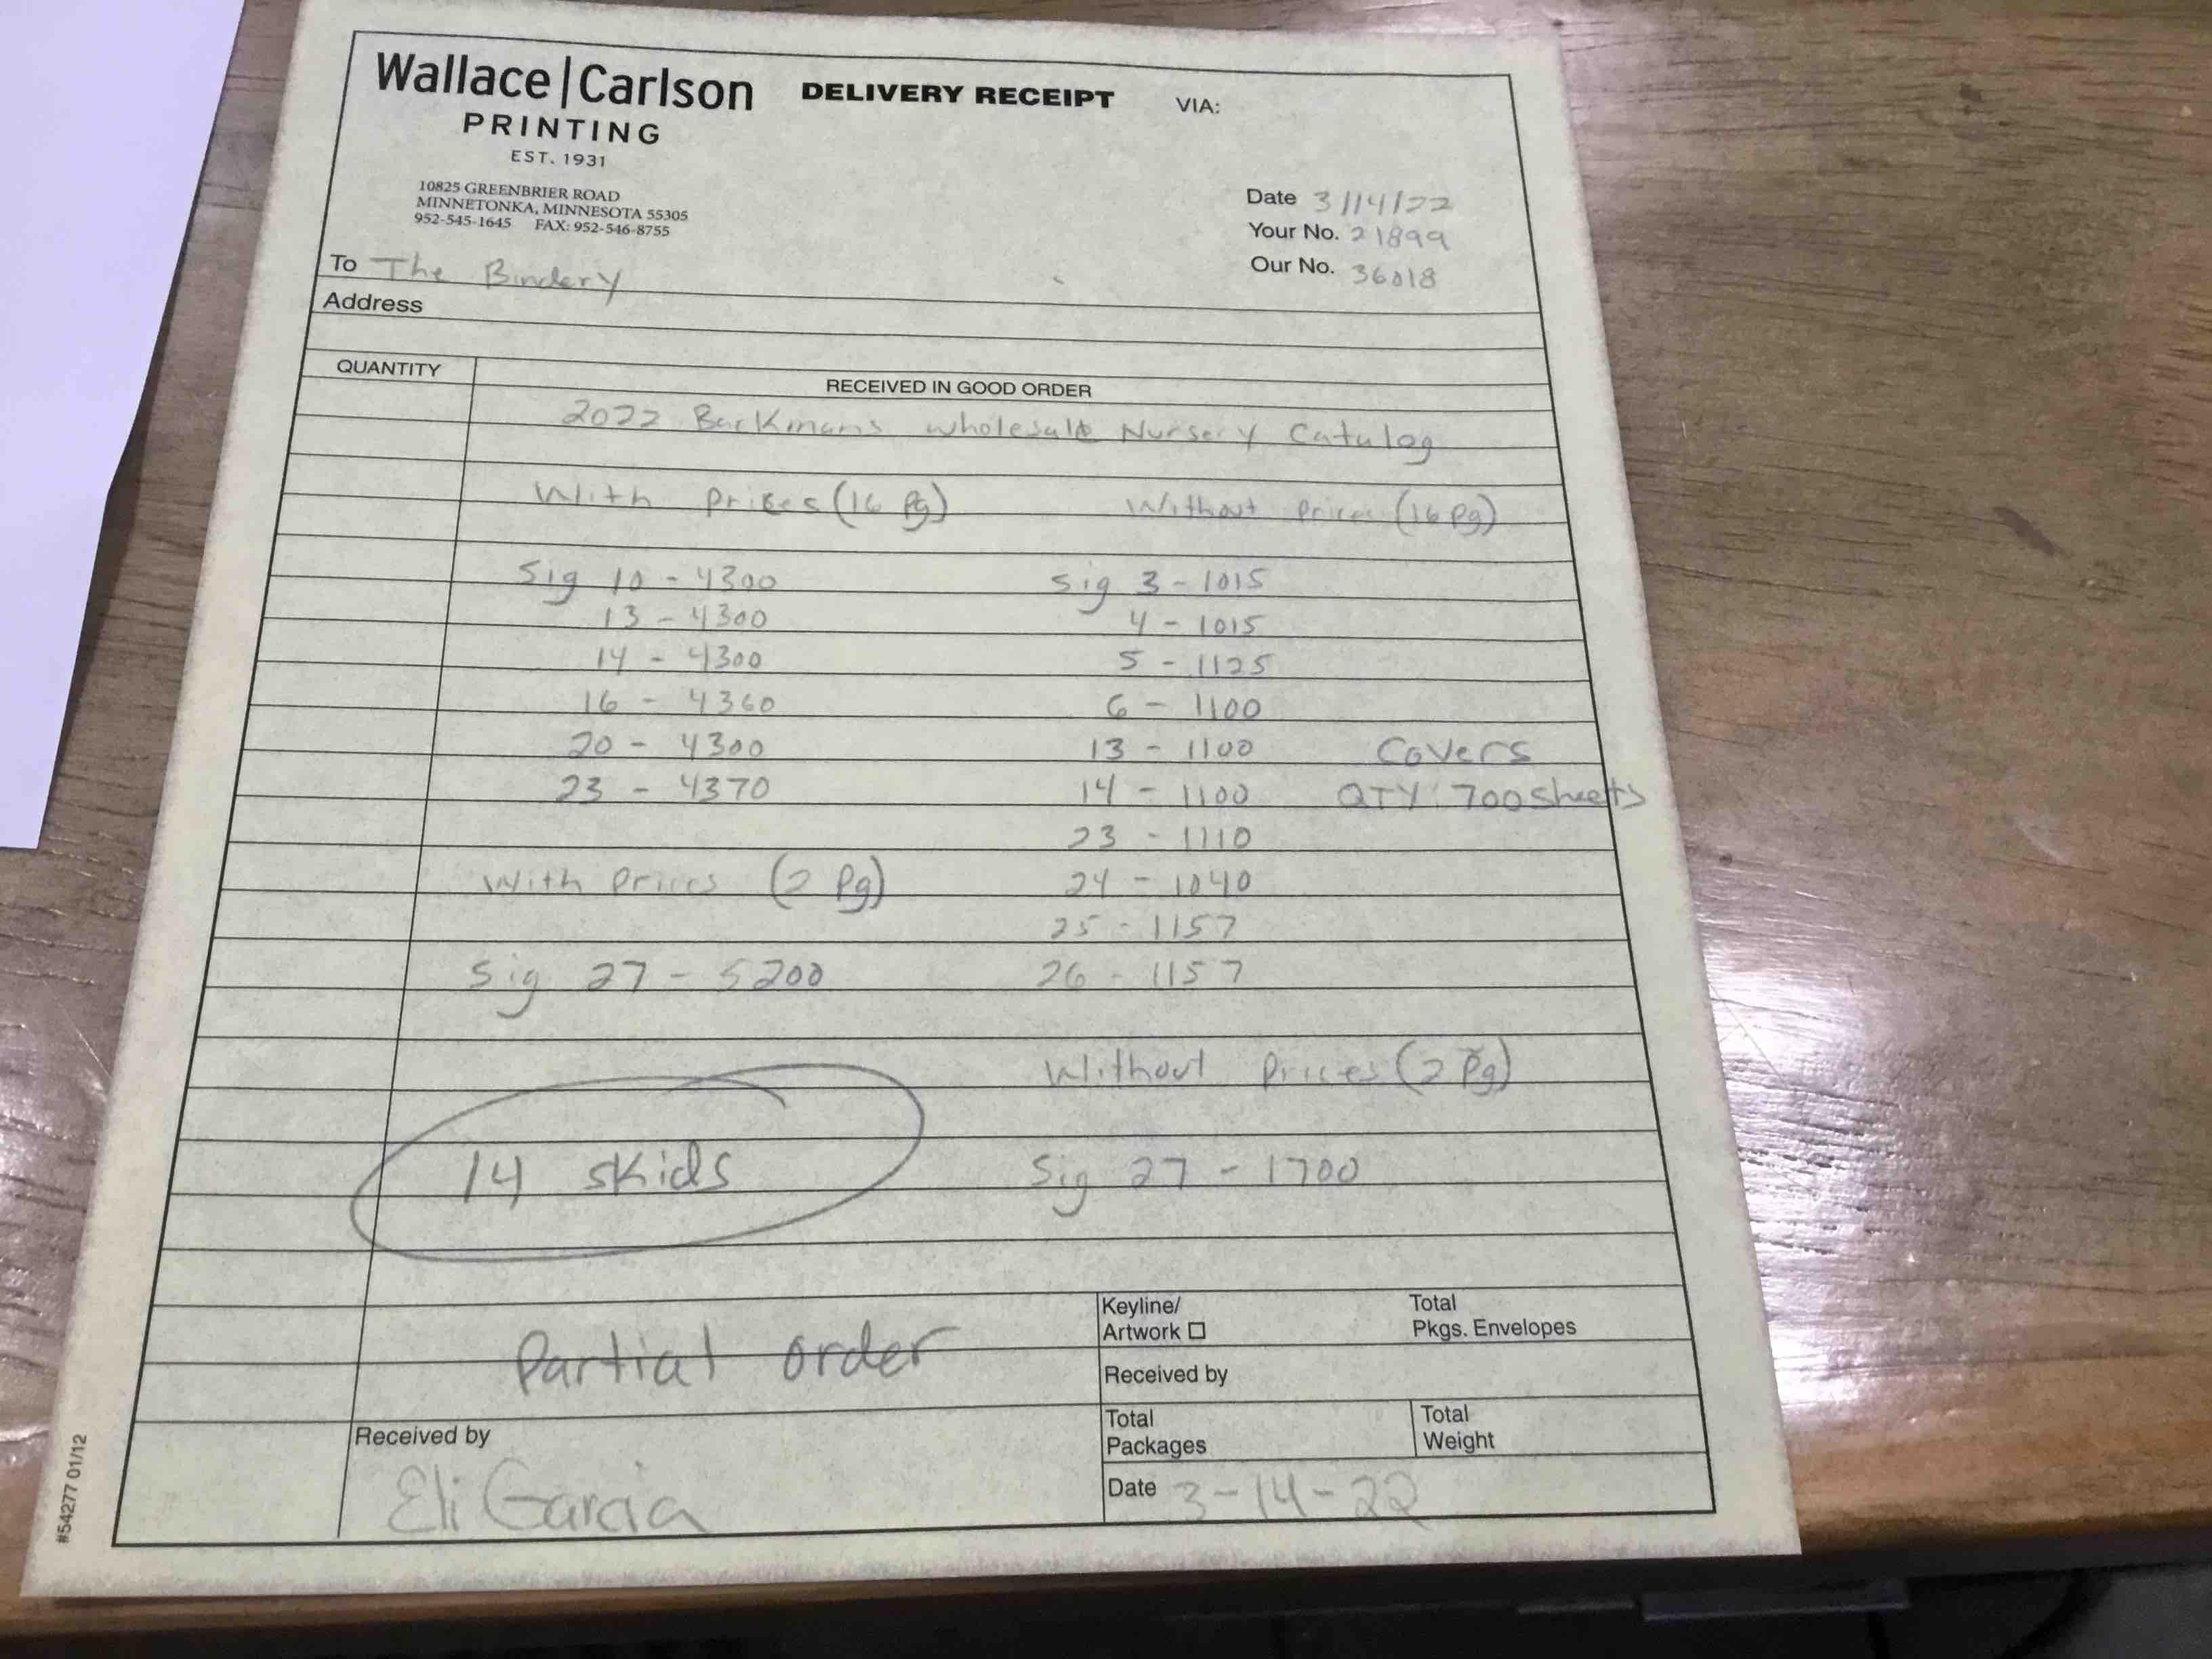 Wallace|Carlson
PRINTING
EST. 1931
DELIVERY RECEIPT
VIA:
10825 GREENBRIER ROAD
MINNETONKA, MINNESOTA 55305
952-545-1645 FAX: 952-546-8755
Date 3/14/22
Your No. 21899
Our No. 36018
To The Bindery
Address
QUANTITY
RECEIVED IN GOOD ORDER
2022 Backmans wholesale Nursery Catalog
With prices (16 Pg)
Sig 10 - 4300
13 - 4300
14 - 4300
16 - 4360
20 - 4300
23 - 4370
With prices (2 Pg)
Sig 27 - 5200
14 skids
Without prices (16 Pg)
Sig 3 - 1015
4 - 1015
5 - 1125
6 - 1100
13 - 1100
14 - 1100
23 - 1110
24 - 1040
25 - 1157
26 - 1157
Covers
QTY: 700 sheets
Without Prices (2 Pg)
Sig 27 - 1700
Partial order
Keyline/
Artwork
Total
Pkgs. Envelopes
Received by
Total
Packages
Total
Weight
Received by
Eli Garcia
Date 3-14-22
#54277 01/12